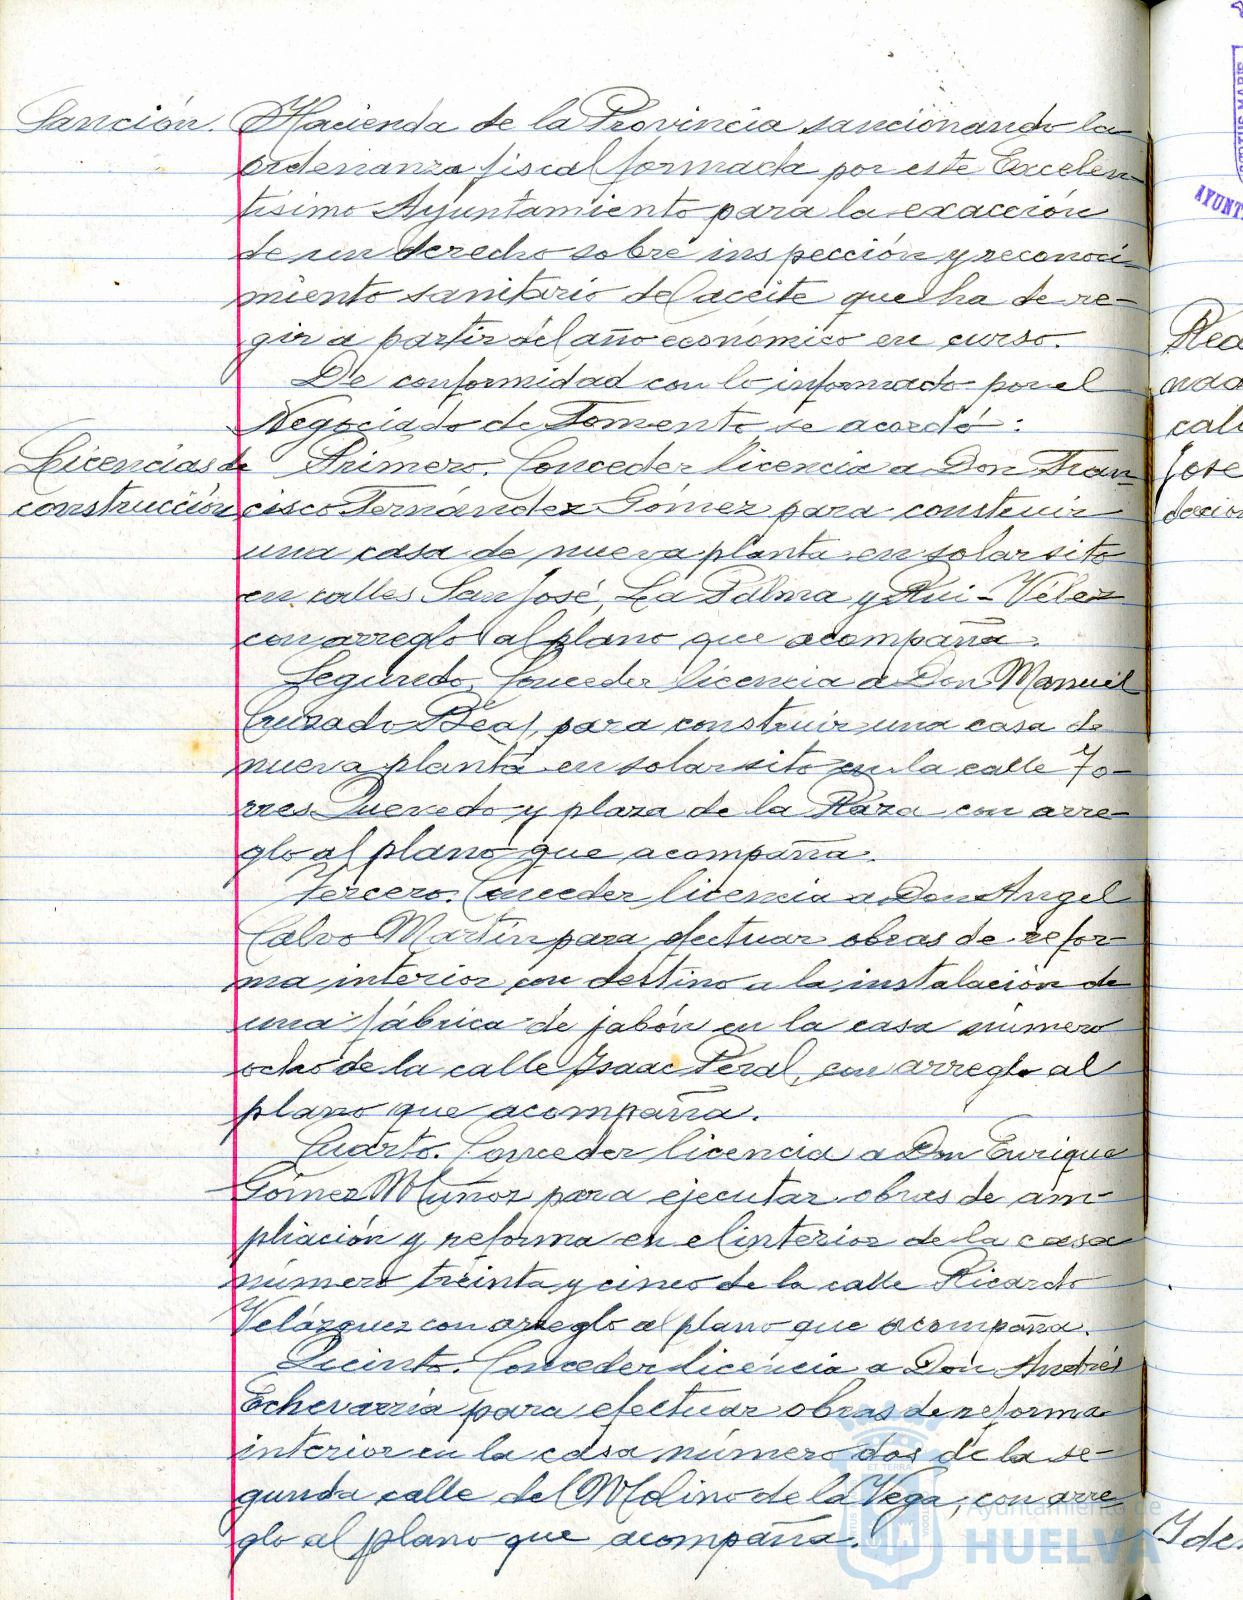 Sanción. Hacienda de la Provincia sancionando la
ordenanza fiscal formada por este Excelen-
tísimo Ayuntamiento para la exacción
de un derecho sobre inspección y reconoci-
miento sanitario del aceite que ha de re-
gir a partir del año económico en curso.
De conformidad con lo informado por el
Negociado de Fomento se acordó:
Licencias de Primero. Conceder licencia a Don Fran-
construcción cisco Fernández Gómez para construir
una casa de nueva planta en solar sito
en calles San José, La Palma y Rui-Vélez
con arreglo al plano que acompaña.
Segundo. Conceder licencia a Don Manuel
Cruzado para construir una casa de
nueva planta en solar sito en la calle To-
rres Quevedo y plaza de la Raza con arre-
glo al plano que acompaña.
Tercero. Conceder licencia a Don Angel
Calvo Martín para efectuar obras de refor-
ma interior con destino a la instalación de
una fábrica de jabón en la casa número
ocho de la calle Isaac Peral, con arreglo al
plano que acompaña.
Cuarto. Conceder licencia a Don Enrique
Gómez Muñoz para ejecutar obras de am-
pliación y reforma en el interior de la casa
número treinta y cinco de la calle Ricardo
Velázquez con arreglo al plano que acompaña.
Quinto. Conceder licencia a Don Andrés
Echevarría para efectuar obras de reforma
interior en la casa número dos de la se-
gunda calle del Molino de la Vega, con arre-
glo al plano que acompaña.
Ayuntamiento de
HUELVA